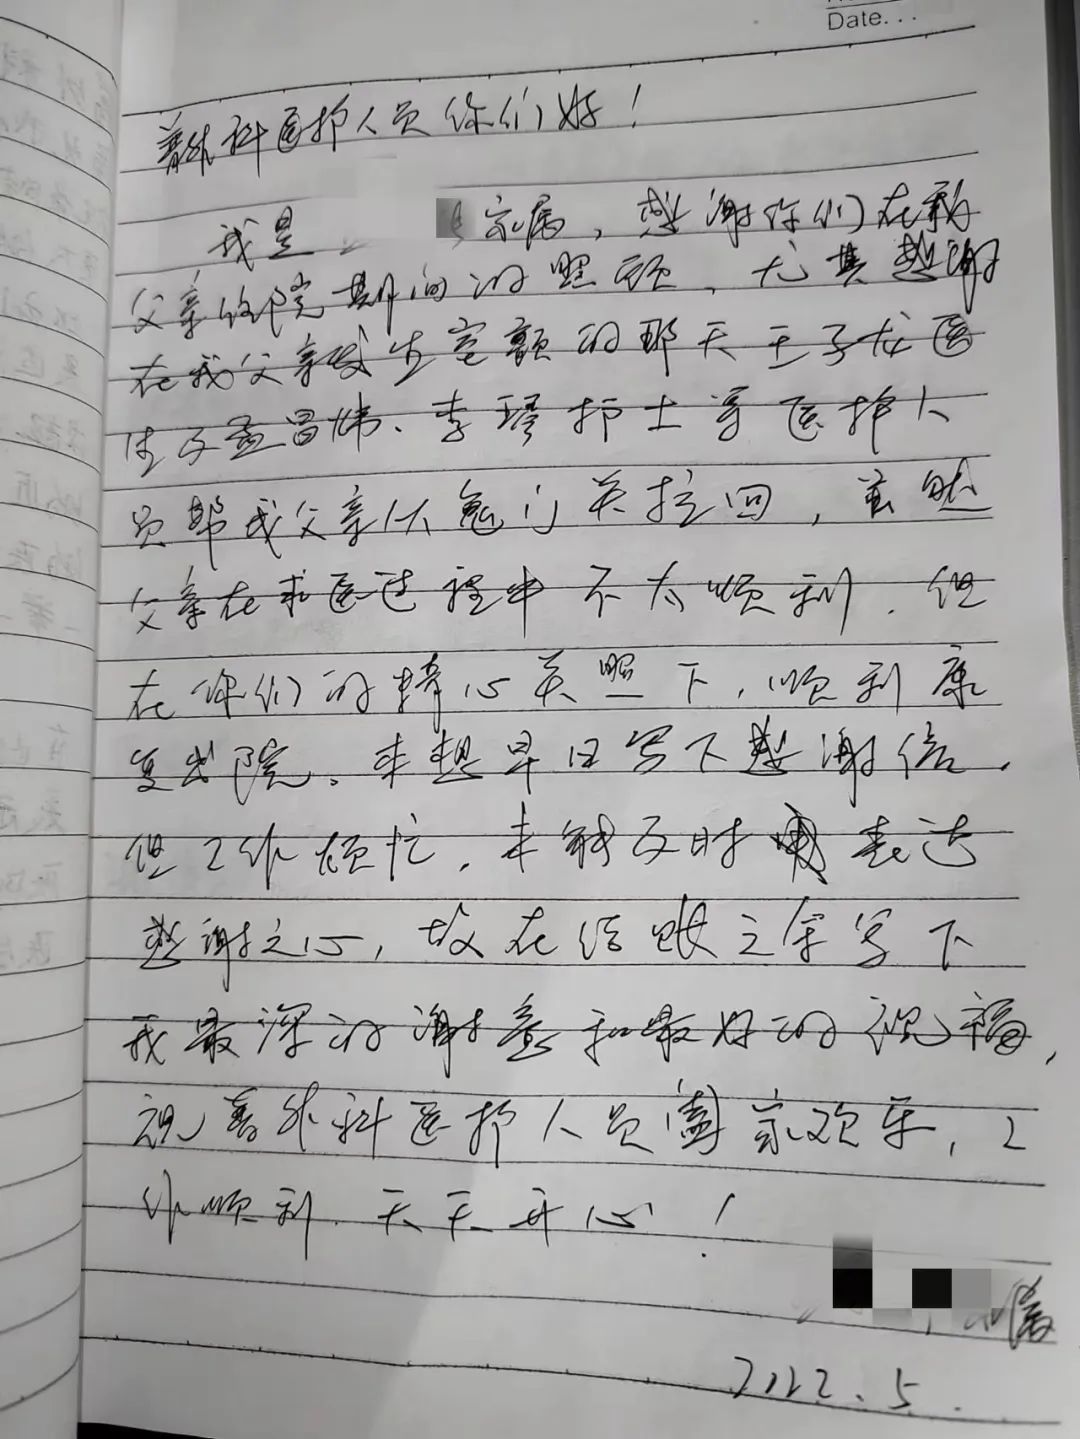 Date...
普外科医护人员你们好!
我是 家属,感谢你们在我
父亲住院期间的照顾、尤其感谢
在我父亲发生室颤的那天王子龙医
生及孟昌炜、李琴护士等医护人
员帮我父亲从鬼门关拉回,虽然
父亲在求医过程中不太顺利,但
在你们的精心关照下,顺利康
复出院。本想早日写下感谢信,
但工作烦忙,未能及时 表达
感谢之心,故在结账之余写下
我最深的谢意和最好的祝福,
祝普外科医护人员阖家欢乐,工
作顺利、天天开心!
2022.5.